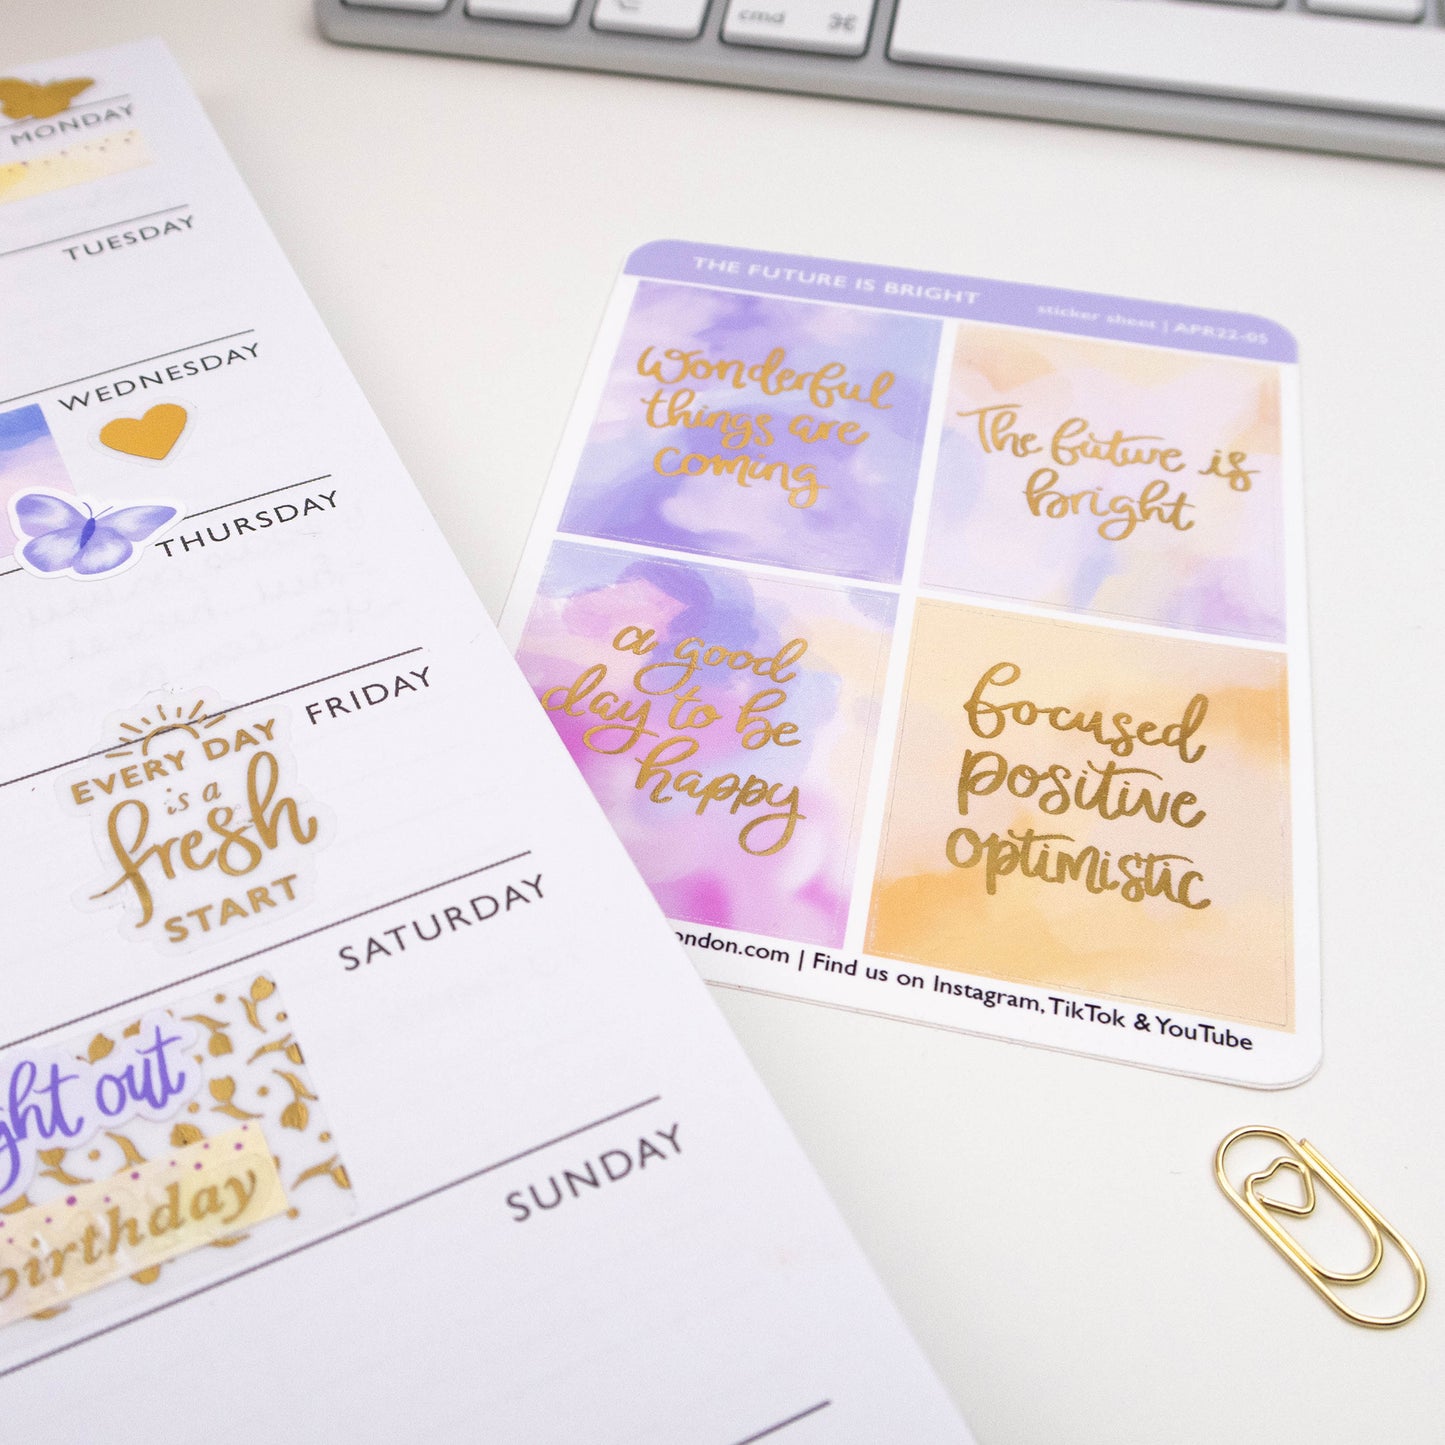 cmd ⌘
MONDAY
TUESDAY
WEDNESDAY
THURSDAY
FRIDAY
EVERY DAY
is a
fresh
START
SATURDAY
out
birthday
SUNDAY
THE FUTURE IS BRIGHT
sticker sheet | APR22-05
Wonderful
things are
coming
The future is
bright
a good
day to be
happy
focused
positive
optimistic
ondon.com | Find us on Instagram, TikTok & YouTube